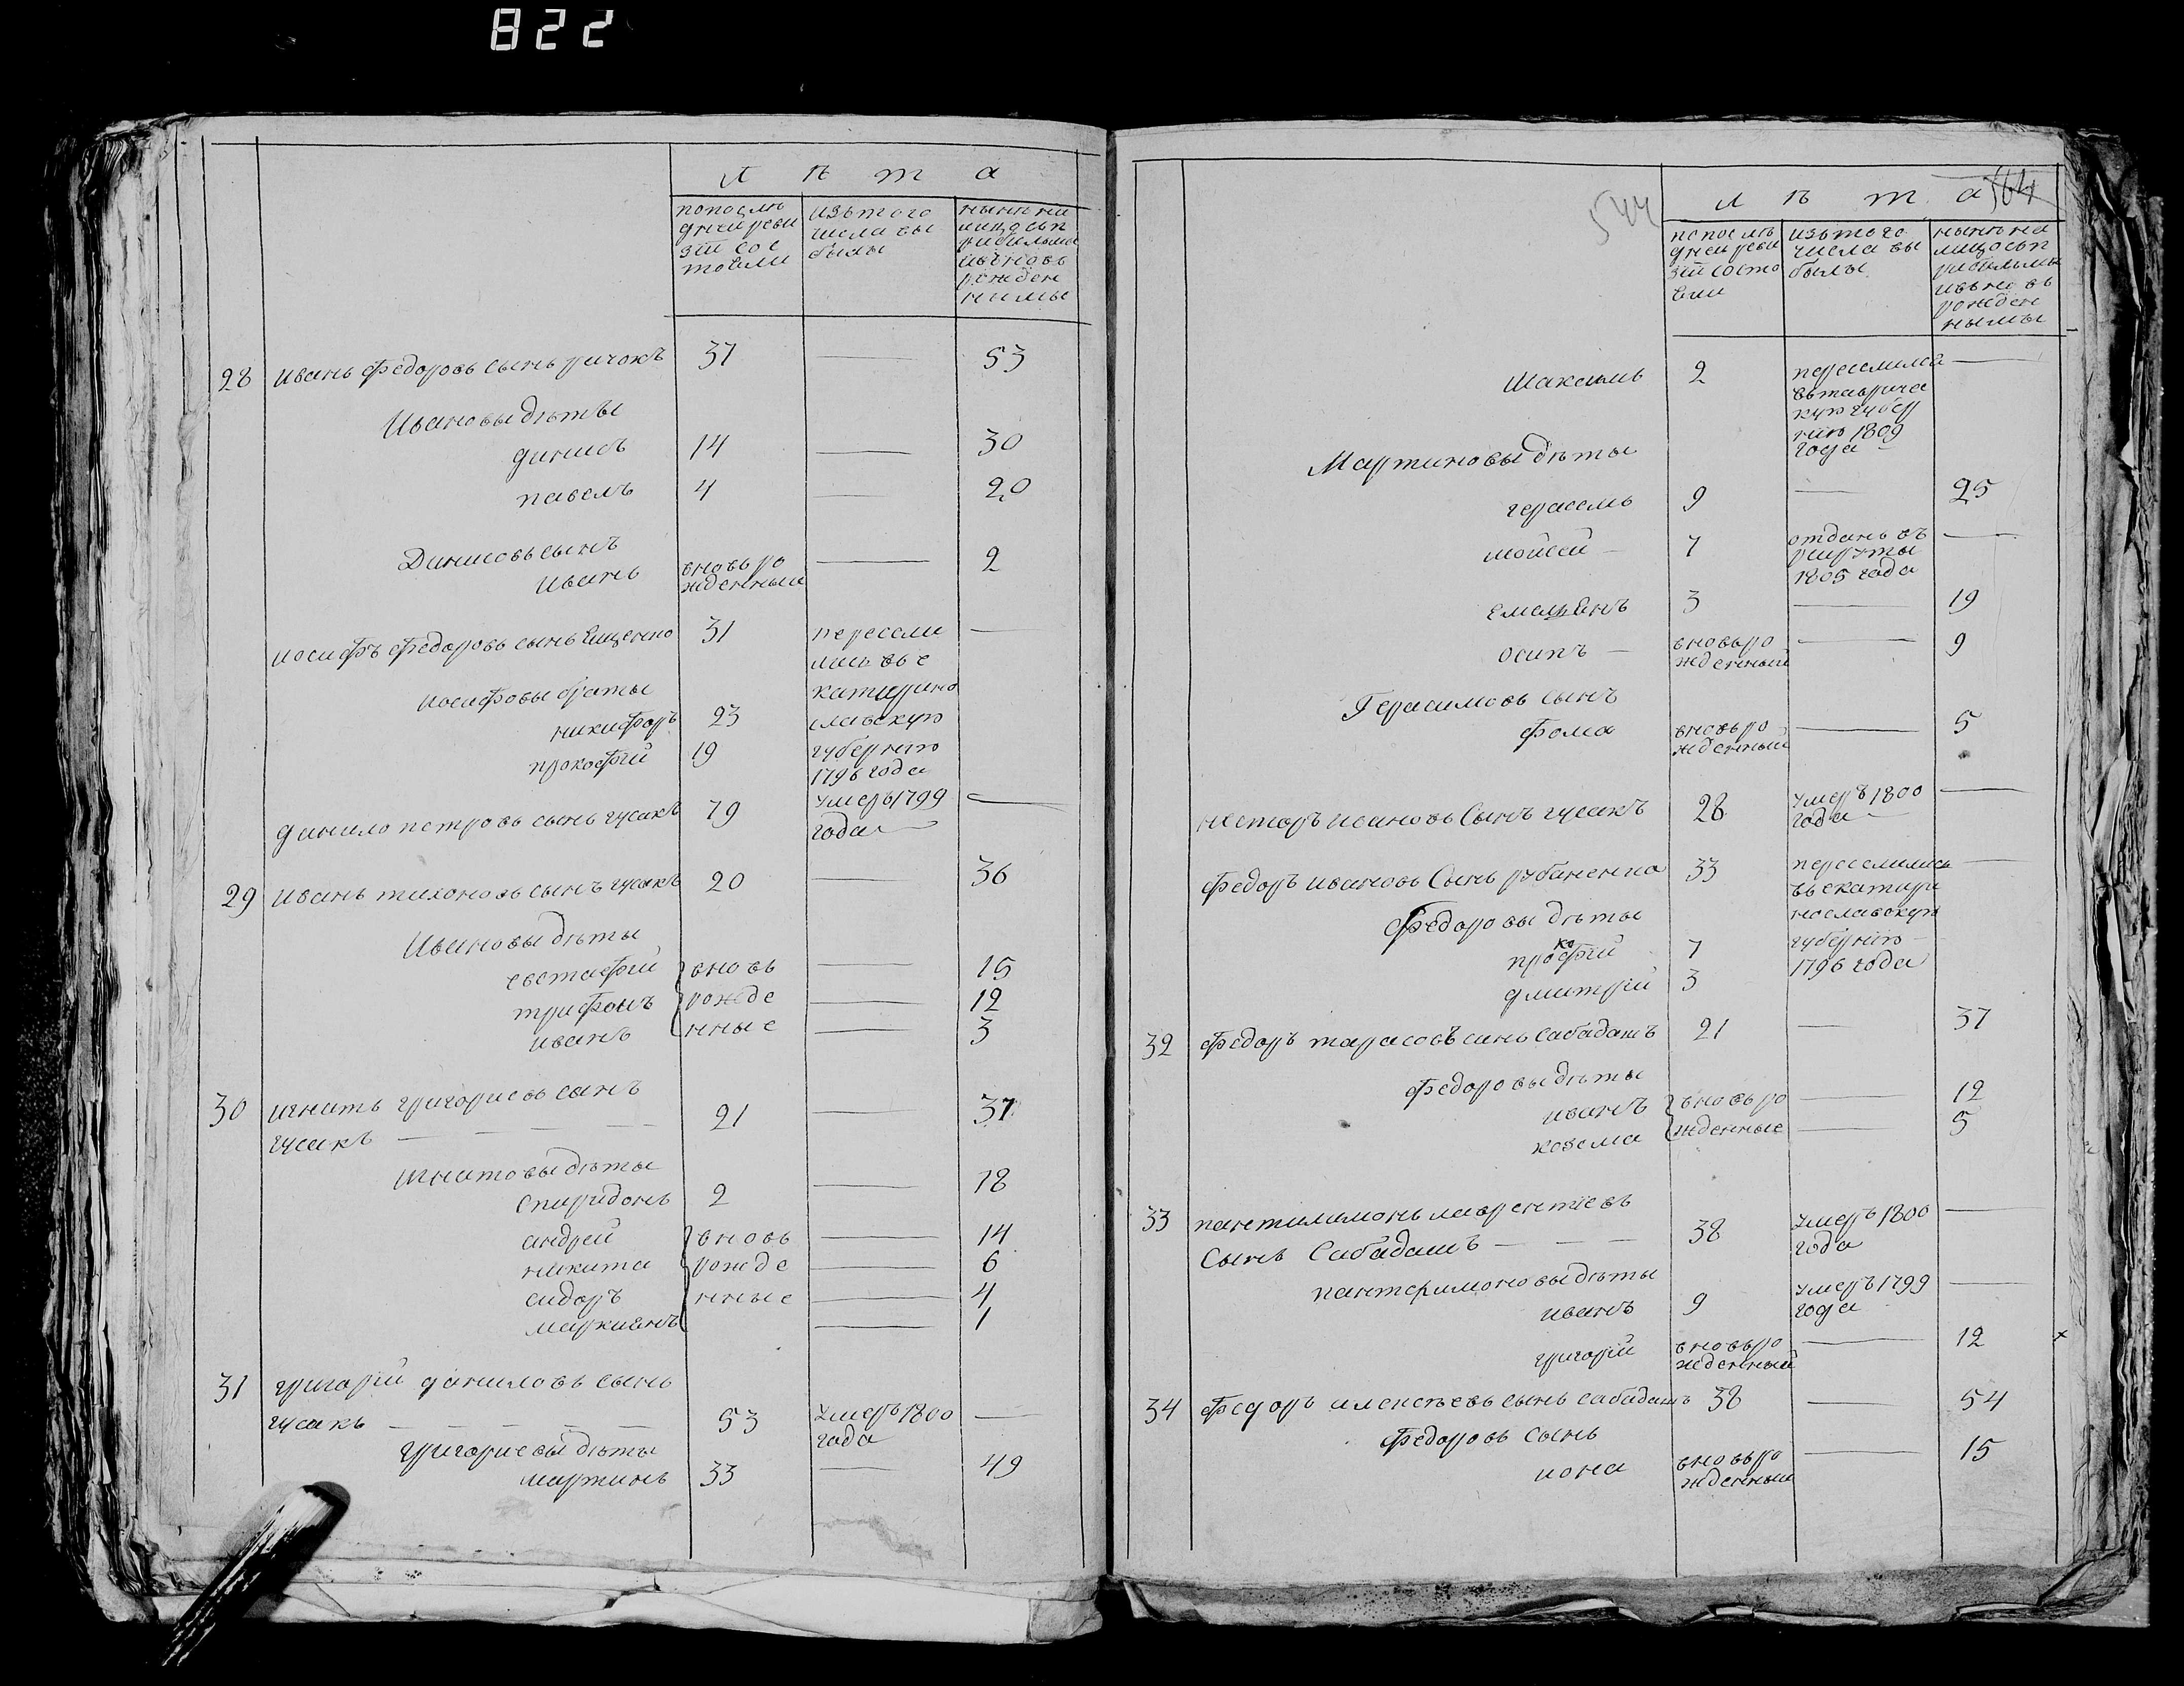 822
лѣта
попослѣ
дней реви
зіи сос
тояли
изътого
числа вы
были
нынѣ на
лицо съп
рибылыми
ивновь
рожден
ными
28 иванъ федоровъ сынъ ричокъ 37 — 53
Ивановы дѣты
динисъ 14 — 30
павелъ 4 — 20
Динисовъ сынъ
иванъ вновьро
жденный — 2
иосифъ федоровъ сынъ ещенко 31 переели
лись въ е
катирино
славскую
губернію
1796 года —
иосифовы браты
никифоръ 23
прокофій 19
данило петровъ сынъ гусакъ 79 умеръ 1799
года —
29 иванъ тихоновъ сынъ гусакъ 20 — 36
Ивановы дѣты
евстафій вновь — 15
трифонъ рожде — 12
иванъ нные — 3
30 игнатъ григориевъ сынъ
гусакъ — — — — 21 — 37
игнатовы дѣты
спиридонъ 2 — 18
андрей вновь — 14
никита рожде — 6
сидоръ нные — 4
маркиянъ — 1
31 григорій даниловъ сынъ
гусакъ — — — — — 53 умеръ 1800
года —
григориевы дѣты
мартинъ 33 — 49
544
564
лѣта
попослѣ
дней реви
зіи состо
яли
изътого
числа вы
были
нынѣ на
лицо съп
рибылыми
ивновь
рожден
ными
Максимъ 2 переселился
втавриче
кую губер
нію 1809
года —
Мартиновы дѣты
герасемъ 9 — 25
мойсей — 7 отданъ въ
рекруты
1805 года —
емельянъ 3 — 19
осипъ — вновьро
жденный — 9
Герасимовъ сынъ
фома вновьро
жденный — 5
несторъ ивановъ сынъ гусакъ 28 умеръ 1800
года —
федоръ ивановъ сынъ рубаненко 33 переселились
въ екатири
нославскую
губернію
1796 года —
Федоровы дѣты
прокофій 7
дмитрій 3
32 федоръ тарасовъ синъ сабадашъ 21 — 37
федоровы дѣты
иванъ вновьро — 12
козема жденные — 5
33 пантилимонъ лаврентіевъ
сынъ сабадашъ — — — 38 умеръ 1800
года —
пантелимоновы дѣты
иванъ 9 умеръ 1799
года —
григорій вновьро
жденный — 12
34 федоръ алексѣевъ сынъ сабадашъ 38 — 54
федоровъ сынъ
иона вновьро
жденный — 15